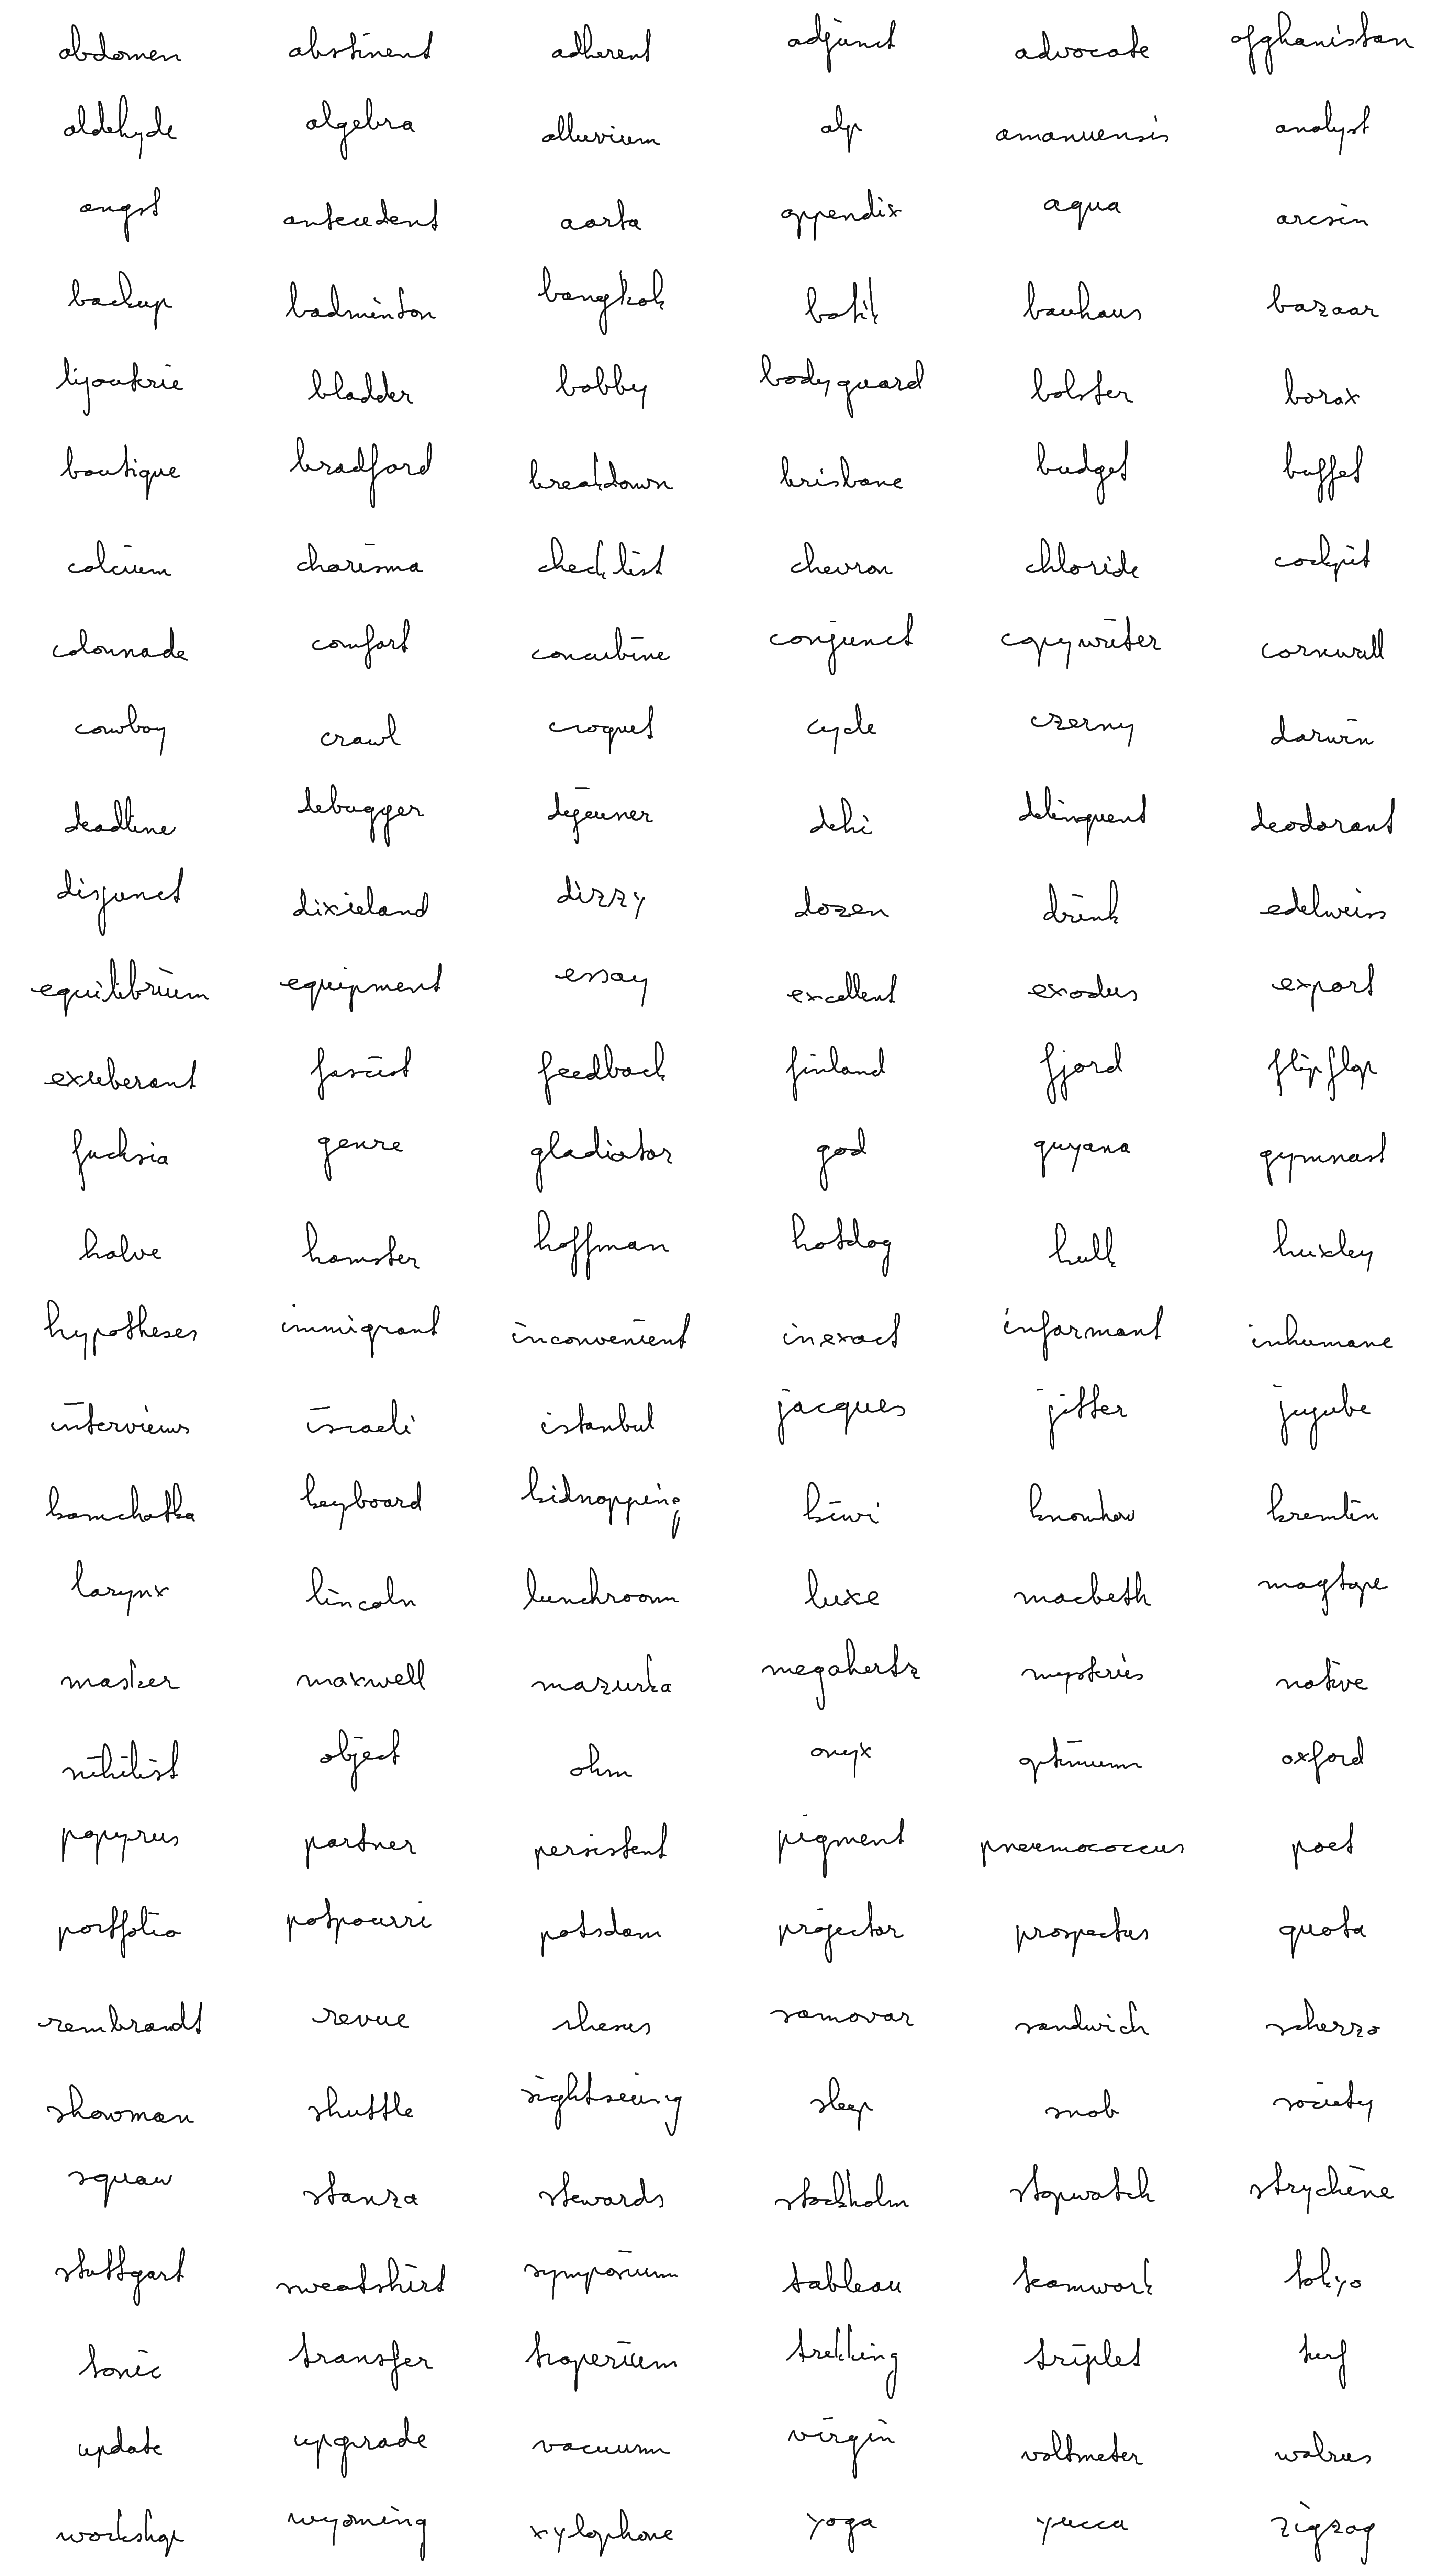 abdomen abstinent adherent adjunct advocate afghanistan
aldehyde algebra alluvium alp amanuensis analyst
angst antecedent aorta appendix aqua arcsin
backup badminton bangkok batik bauhaus bazaar
bijouterie bladder bobby bodyguard bolster borax
boutique bradford breakdown brisbane budget buffet
calcium charisma checklist chevron chloride cockpit
colonnade comfort concubine conjunct copywriter cornwall
cowboy crawl croquet cycle czerny darwin
deadline debugger dejeuner delhi delinquent deodorant
disjunct dixieland dizzy dozen drink edelweiss
equilibrium equipment essay excellent exodus export
exuberant fascist feedback finland fjord flipflop
fuchsia genre gladiator god guyana gymnast
halve hamster hoffman hotdog hulk huxley
hypotheses immigrant inconvenient inexact informant inhumane
interviews israeli istanbul jacques jitter jujube
kamchatka keyboard kidnapping kiwi knowhow kremlin
larynx lincoln lunchroom luxe macbeth magtape
masker maxwell mazurka megahertz mysteries native
nihilist object ohm onyx optimum oxford
papyrus partner persistent pigment pneumococcus poet
portfolio potpourri potsdam projector prospectus quota
rembrandt revue rhesus samovar sandwich scherzo
showman shuttle sightseeing sleep snob society
squaw stanza stewards stockholm stopwatch strychine
stuttgart sweatshirt symposium tableau teamwork tokyo
tonic transfer traperium trekking triplet turf
update upgrade vacuum virgin voltmeter walrus
workshop wyoming xylophone yoga yucca zigzag